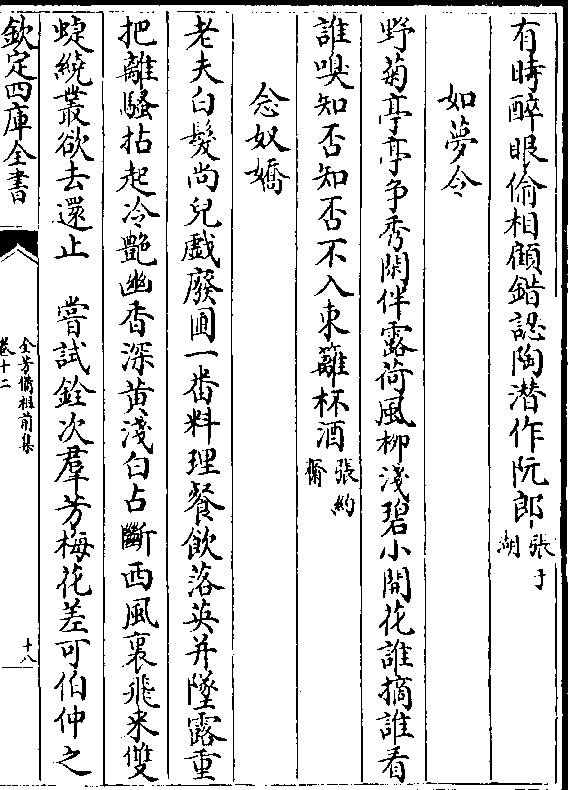 有時醉眼偷相顧錯認陶潛作阮郎張于湖
如夢令
野菊亭亭争秀閑伴露荷風柳淺碧小開花誰摘誰看
誰嗅知否知否不入東籬杯酒張約齋
念奴嬌
老夫白髮尚兒戲廢圃一番料理餐飲落英并墜露重
把離騷拈起冷艷幽香深黄淺白占斷西風裏飛来雙
蜨繞叢欲去還止　嘗試銓次羣芳梅花差可伯仲之
欽定四庫全書
全芳備祖前集
卷十二
十八